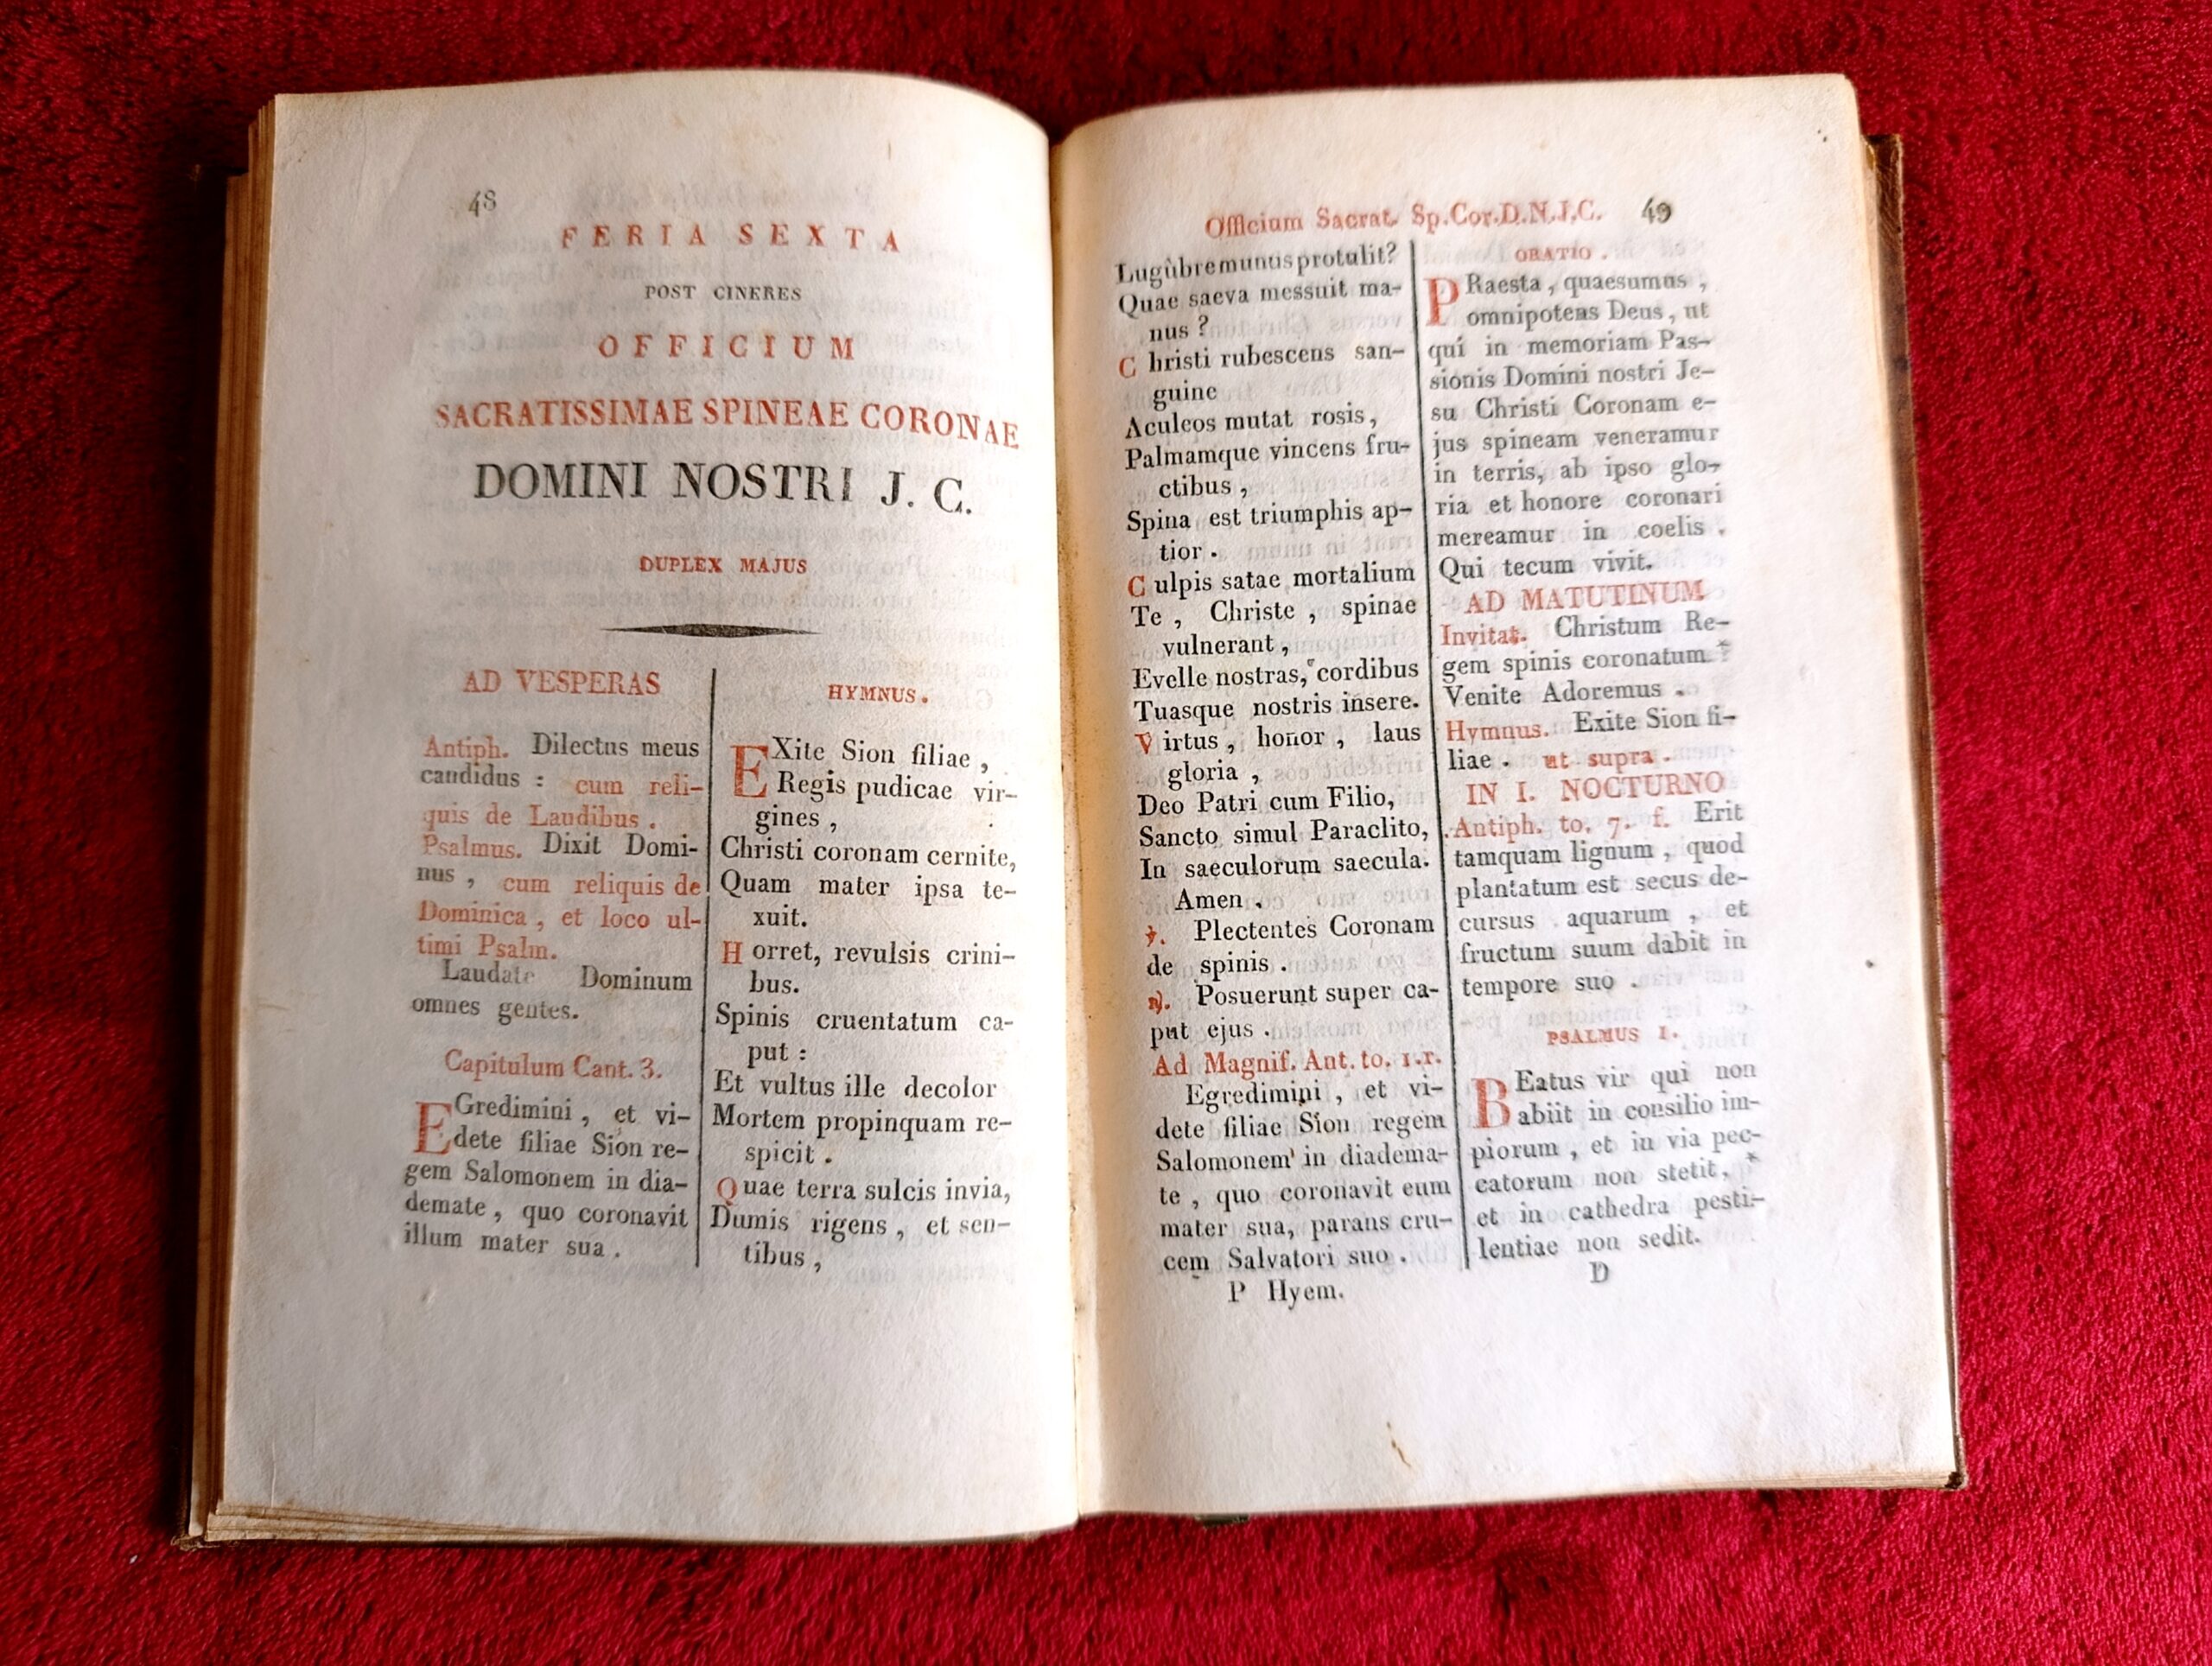 48
FERIA SEXTA
POST CINERES
OFFICIUM
SACRATISSIMAE SPINEAE CORONAE
DOMINI NOSTRI J. C.
DUPLEX MAJUS
AD VESPERAS
Antiph. Dilectus meus
candidus : cum reli-
quis de Laudibus .
Psalmus. Dixit Domi-
nus , cum reliquis de
Dominica , et loco ul-
timi Psalm.
Laudate Dominum
omnes gentes.
Capitulum Cant. 3.
EGredimini , et vi-
dete filiae Sion re-
gem Salomonem in dia-
demate , quo coronavit
illum mater sua .
HYMNUS .
EXite Sion filiae ,
Regis pudicae vir-
gines ,
Christi coronam cernite,
Quam mater ipsa te-
xuit.
Horret, revulsis crini-
bus.
Spinis cruentatum ca-
put :
Et vultus ille decolor
Mortem propinquam re-
spicit .
Quae terra sulcis invia,
Dumis rigens , et sen-
tibus ,
Officium Sacrat. Sp.Cor.D.N.J.C. 49
Lugùbre munus protulit?
Quae saeva messuit ma-
nus ?
Christi rubescens san-
guine
Aculeos mutat rosis,
Palmamque vincens fru-
ctibus ,
Spina est triumphis ap-
tior .
Culpis satae mortalium
Te , Christe , spinae
vulnerant ,
Evelle nostras, cordibus
Tuasque nostris insere.
Virtus , honor , laus
gloria ,
Deo Patri cum Filio,
Sancto simul Paraclito,
In saeculorum saecula.
Amen .
℣. Plectentes Coronam
de spinis .
℟. Posuerunt super ca-
put ejus .
Ad Magnif. Ant. to. 1.r.
Egredimini , et vi-
dete filiae Sion regem
Salomonem in diadema-
te , quo coronavit eum
mater sua, parans cru-
cem Salvatori suo .
P Hyem.
ORATIO .
PRaesta , quaesumus ,
omnipotens Deus , ut
qui in memoriam Pas-
sionis Domini nostri Je-
su Christi Coronam e-
jus spineam veneramur
in terris, ab ipso glo-
ria et honore coronari
mereamur in coelis .
Qui tecum vivit.
AD MATUTINUM
Invitat. Christum Re-
gem spinis coronatum *
Venite Adoremus .
Hymnus. Exite Sion fi-
liae . ut supra .
IN I. NOCTURNO
Antiph. to. 7. f. Erit
tamquam lignum , quod
plantatum est secus de-
cursus aquarum , et
fructum suum dabit in
tempore suo .
PSALMUS I.
BEatus vir qui non
abiit in consilio im-
piorum , et in via pec-
catorum non stetit, *
et in cathedra pesti-
lentiae non sedit.
D